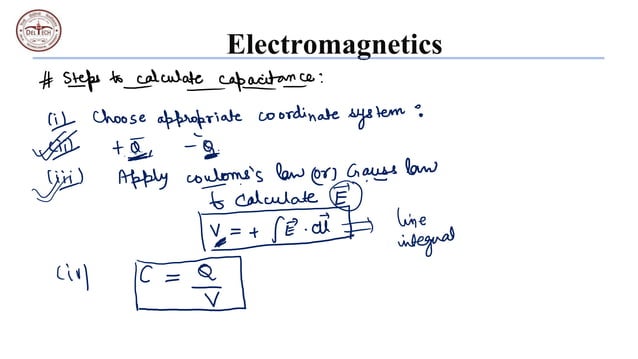 DELTECH
Electromagnetics
# Steps to calculate capacitance:
(i) Choose appropriate coordinate system :
(ii) +Q, -Q
(iii) Apply coulomb's law (or) Gauss law
to calculate E⃗
V = + ∫ E⃗ · dl⃗ ⇒ line
integral
(iv) C = Q/V